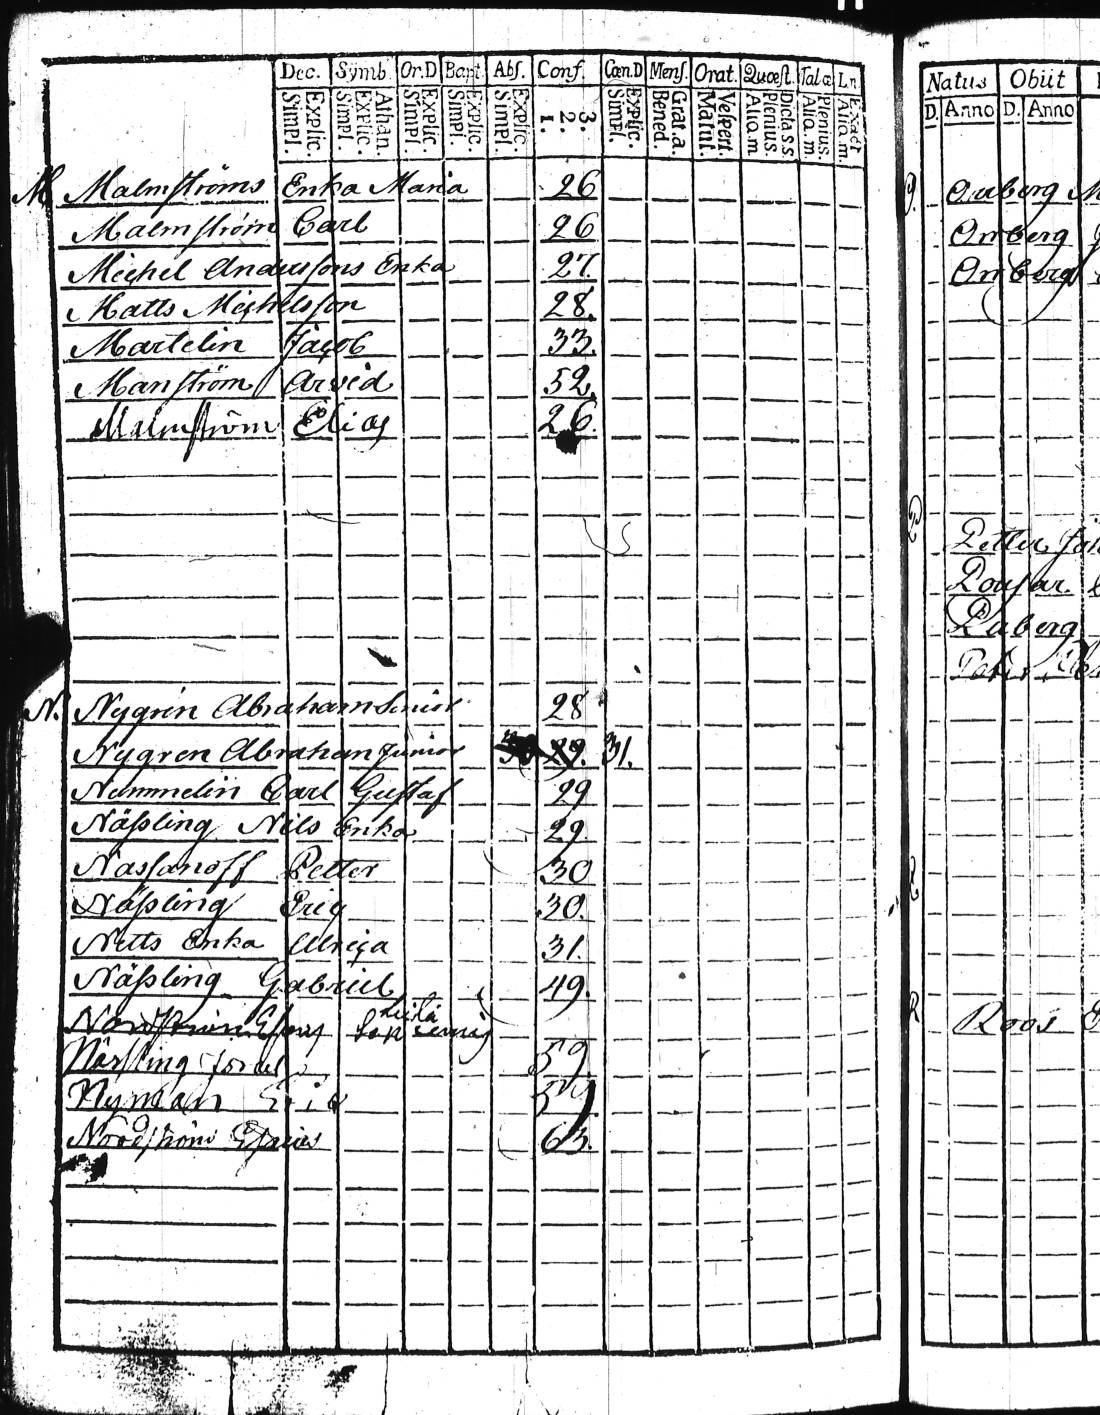 Dec. Symb. Or.D Bapt. Abs. Conf. Cœn.D Mens. Orat. Quœst. Tal.œ Ln.
Simpl. Explic. Simpl. Explic. Athan. Simpl. Explic. Simpl. Explic. Simpl. Explic. 1. 2. 3. Simpl. Explic. Bened. Grat.a. Matut. Vespert. Alio. m Plenius. Dicta s.s. Alio. m. Plenius. Alio. m. Exact
M Malmströms Erika Maria 26
Malmström Carl 26
Michel Anderssons Erika 27.
Matts Michelsson 28.
Martelin Jacob 33.
Manström Arvid 52.
Malmström Elias 26.
N. Nygrén Abraham Senior 28
Nygren Abraham Junior 29. 31.
Nummelin Carl Gustaf 29
Näsling Nils Erika 29.
Nassanoff Petter 30
Näsling Eric 30.
Nitts Erika Ulrica 31.
Näsling Gabriel 49.
Nordström
Närsling 59.
Nyman Eric 59
Nordström Esaias 63.
Natus Obiit
D. Anno D. Anno
Orrberg
Orrberg
Petter
Roos